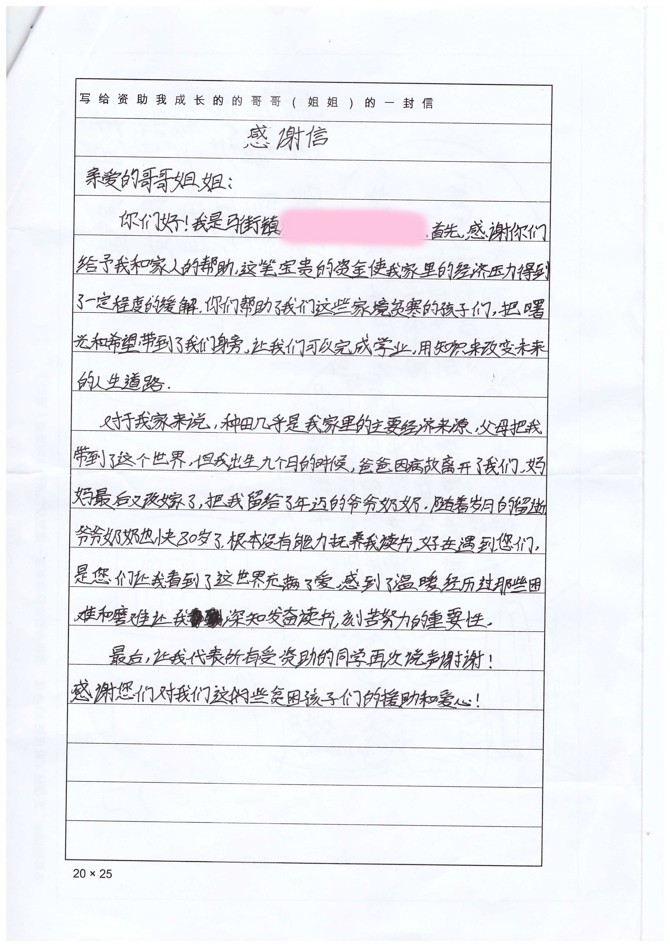 写给资助我成长的的哥哥(姐姐)的一封信
感谢信
亲爱的哥哥姐姐：
你们好！我是马街镇 首先，感谢你们
给予我和家人的帮助，这笔宝贵的资金使我家里的经济压力得到
了一定程度的缓解，你们帮助了我们这些家境贫寒的孩子们，把曙
光和希望带到了我们身旁，让我们可以完成学业，用知识来改变未来
的人生道路．
对于我家来说，种田几乎是我家里的主要经济来源，父母把我
带到了这个世界，但我出生九个月的时候，爸爸因病故离开了我们，妈
妈最后又改嫁了，把我留给了年迈的爷爷奶奶．随着岁月的留逝
爷爷奶奶也快70岁了，根本没有能力抚养我读书，好在遇到您们，
是您们让我看到了这世界充满了爱，感到了温暖，经历过那些困
难和磨难让我 深知发奋读书，刻苦努力的重要性．
最后，让我代表所有受资助的同学再次说声谢谢！
感谢您们对我们这些贫困孩子们的援助和爱心！
20×25